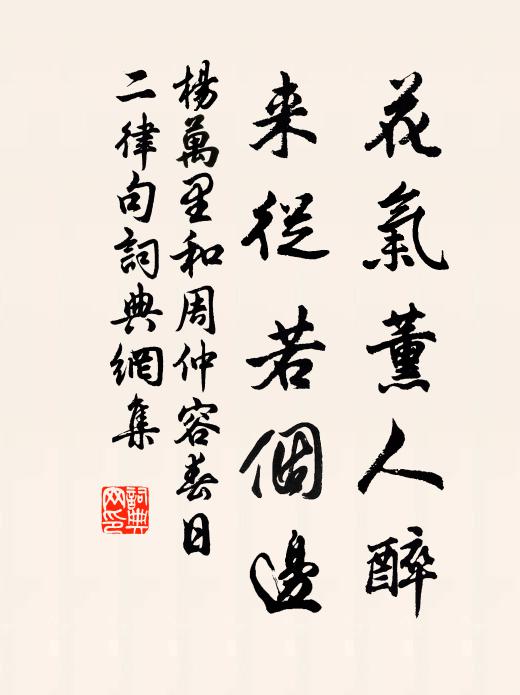 花氣薰人醉
来從若個邊
楊萬里和周仲容春日
二律句詞典網集
詞典
网印